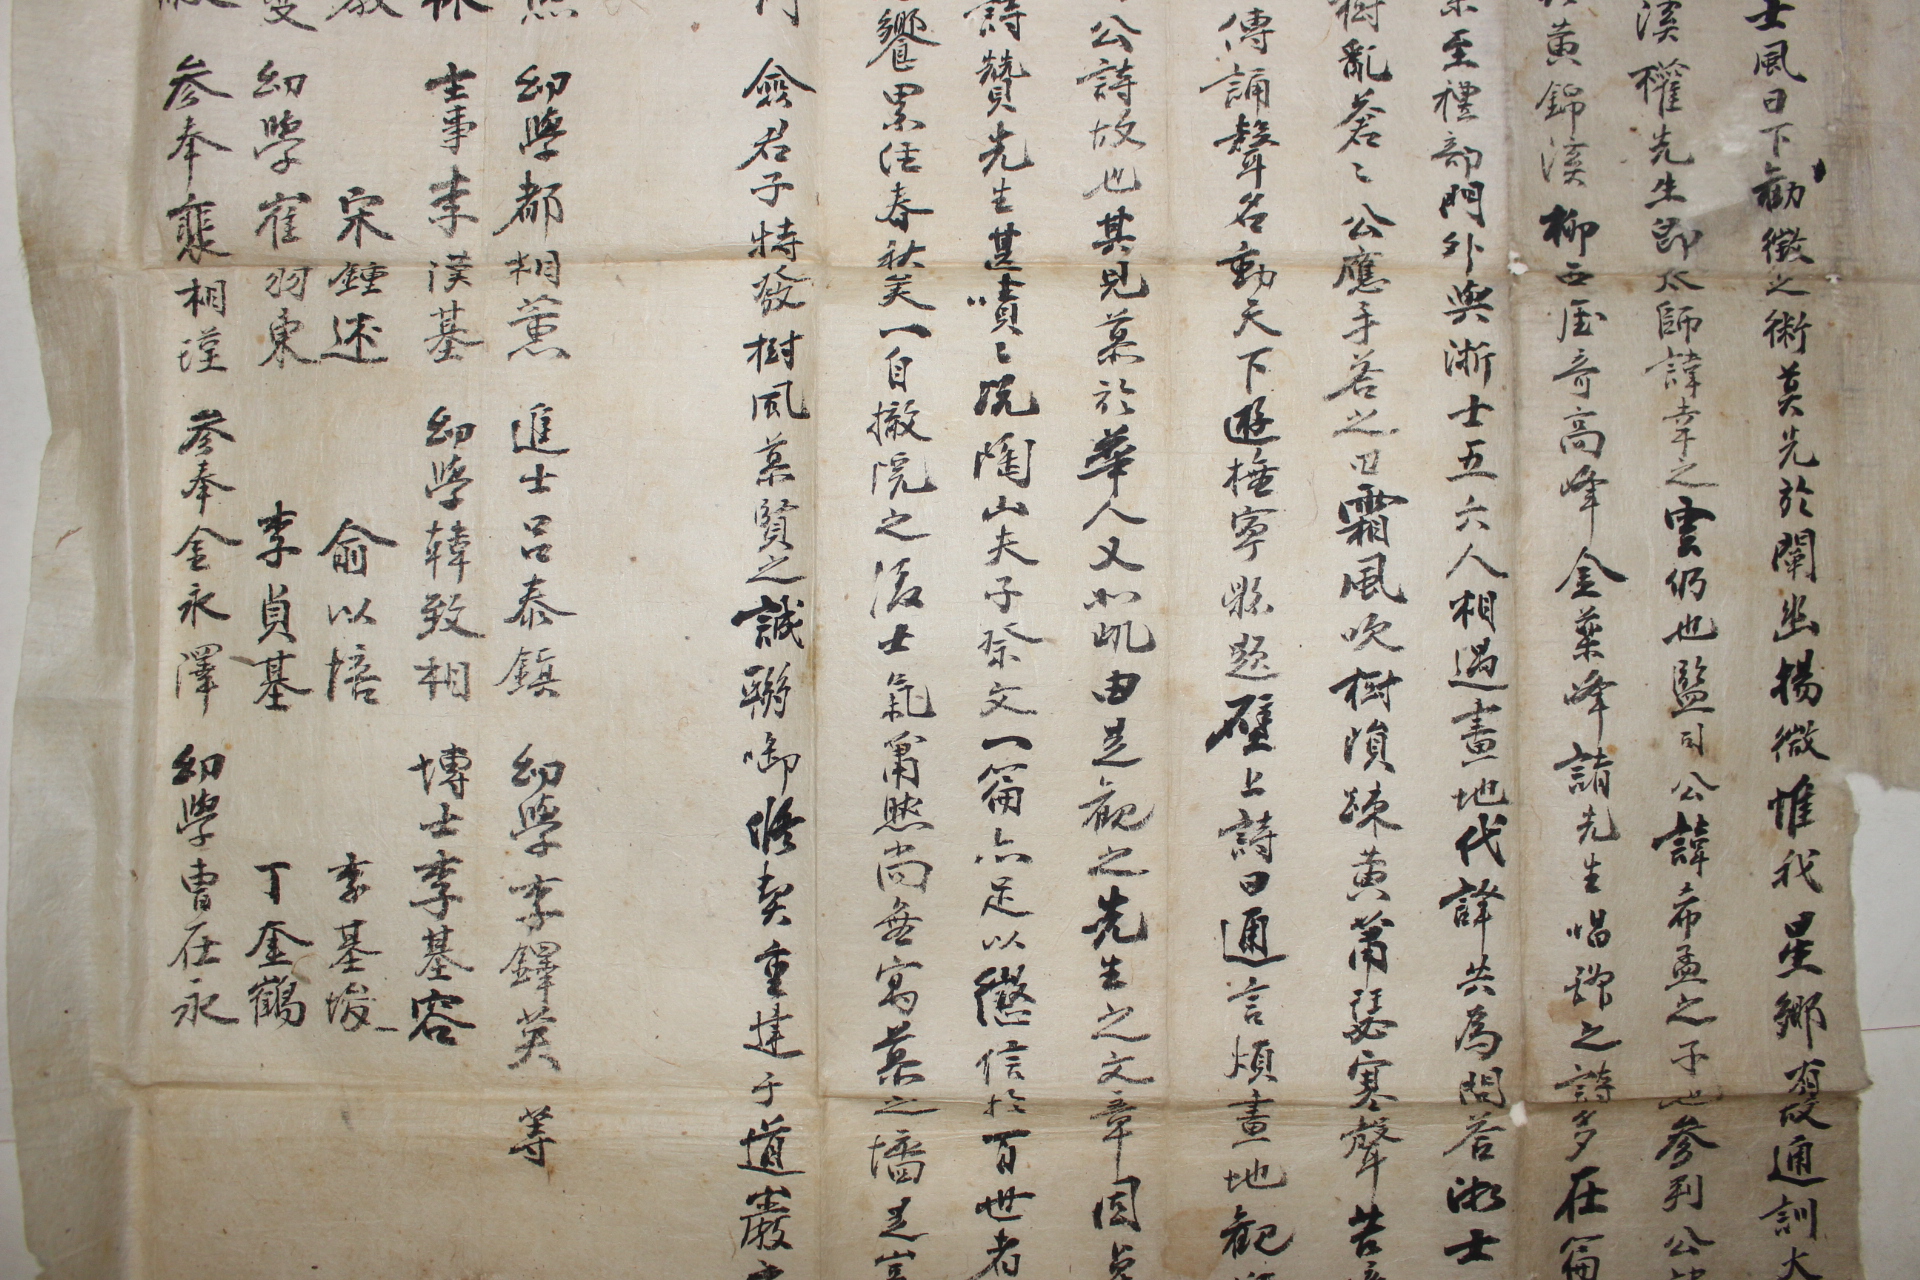 士風日下勸徵之術莫先於闡幽揚微惟我星鄉有故通訓大
溪權先生卽太師諱幸之雲仍也監司公諱希孟之子也參判公
黃錦溪柳西厓奇高峰金藥峰諸先生唱酬之詩多在篇
至禮部門外與浙士五六人相遇畫地代譯共爲問答浙士
樹亂蒼〻公應手答之曰霜風吹樹隕疎黃蕭瑟寒聲苦
傳誦聲名動天下遊撫寧縣題壁上詩曰通言煩畫地觀
公詩故也其見慕於華人又如此由是觀之先生之文章固
詩贊先生甚嘖〻況陶山夫子祭文一篇亦足以徵信於百世者
饗累經春秋矣一自撤院之後士氣蕭然尚無寓慕之墻是豈
僉君子特發樹風慕賢之誠聯啣修契重建于道巖
幼學都相薰 進士呂泰鎭 幼學李鐸英 等
士事李漢基 幼學韓致相 博士李基容
宋鍾述 俞以培 李基峻
幼學崔羽東 李貞基 丁奎鶴
參奉裵相瑾 參奉金永澤 幼學曹在永